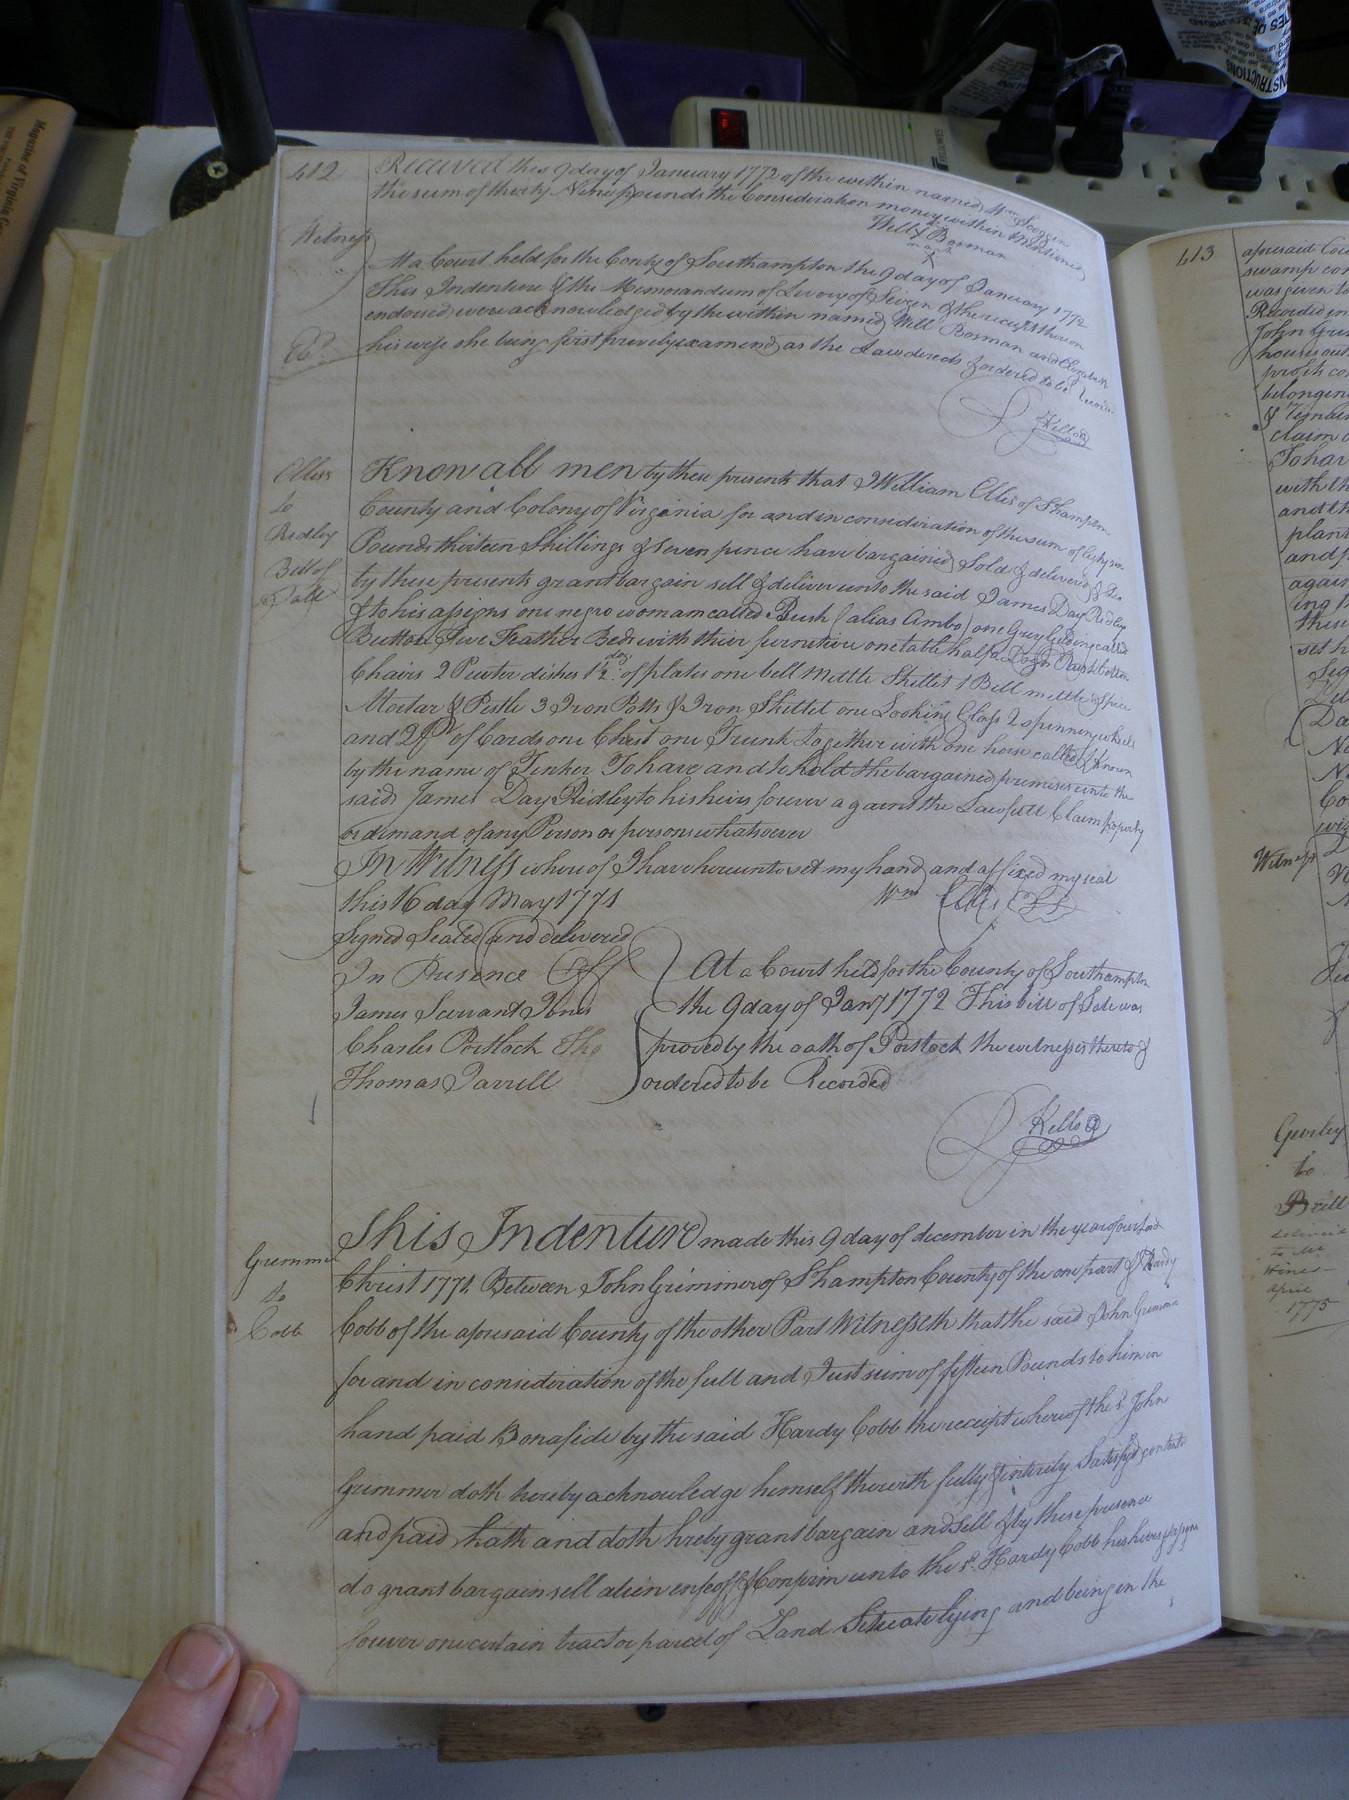 412
Received this 9 day of January 1772 of the within named Wm
the sum of thirty Nine pounds the Consideration money within Mentioned
Will Bosman
mark
Witness
At a Court held for the County of Southampton the 9 day of January 1772
This Indenture & the Memorandum of Livery of Seizen & the receipt thereon
endorsed were acknowledged by the within named Will Bosman and Elizabeth
his wife she being first prively examened as the Law directs & ordered to be
Kello
Ellis
to
Ridley
Bill of
Sale
Know all men by these presents that I William Ellis of Shampton
County and Colony of Virginia for and in consideration of the sum of
Pounds thirteen Shillings & seven pence have bargained Sold & delivered & Do
by these presents grant bargain sell & deliver unto the said James Day Ridley
& to his assigns one negro womam called Beush (alias Ambo) one Grey Gelding called
Button five Feather Beds with their furniture one table half a Dozn
Chairs 2 Pewter dishes 1½ doz of plates one bell Mettle Skillet 1 Bell mettle Spice
Mortar & Pestle 3 Iron Potts & Iron Skillet one Looking Glass 2 spinning wheels
and 2 pr of Cards one Chest one Trunk Together with one horse called & known
by the name of Tinker To have and to hold the bargained premises unto the
said James Day Ridley to his heirs forever against the Lawfull Claim property
or demand of any Person or persons whatsoever
In Witness whereof I have hereunto set my hand and affixed my seal
this 16 day May 1771
Wm Ellis LS
Signed Sealed and delivered
In Presence Off
James Scrvant Jones
Charles Portlock
Thomas Jarrell
At a Court held for the County of Southampton
the 9 day of Jany 1772 This bill of Sale was
proved by the oath of Portlock the witnesses thereto &
ordered to be Recorded
Kello
Grummer
to
Cobb
This Indenture made this 9 day of december in the year of our Lord
Christ 1771 Between John Grimmer of Shampton County of the one part & Hardy
Cobb of the aforesaid County of the other Part Witnesseth that the said John Grimmer
for and in consideration of the full and Just sum of fifteen Pounds to him in
hand paid Bonafide by the said Hardy Cobb the receipt whereof the sd John
Grimmer doth hereby acknowledge himself therewith fully & intirely Satisfyd contente
and paid hath and doth hreby grant bargain and Sell & by these presence
do grant bargain sell alein enfeoff & Conpirm unto the sd. Hardy Cobb his heirs & assigns
forever one certain tract or parcel of Land Situate lying and being in the
413
aforesaid
swamp
was given to
Recorded in
John
houses out
profits
belonging
claim
To have
with th
and th
plant
and
again
these
set h
Witness
to
delivered
to
April
1775
Magazine of Virginia
FELLOWES
INSTRUCTIONS